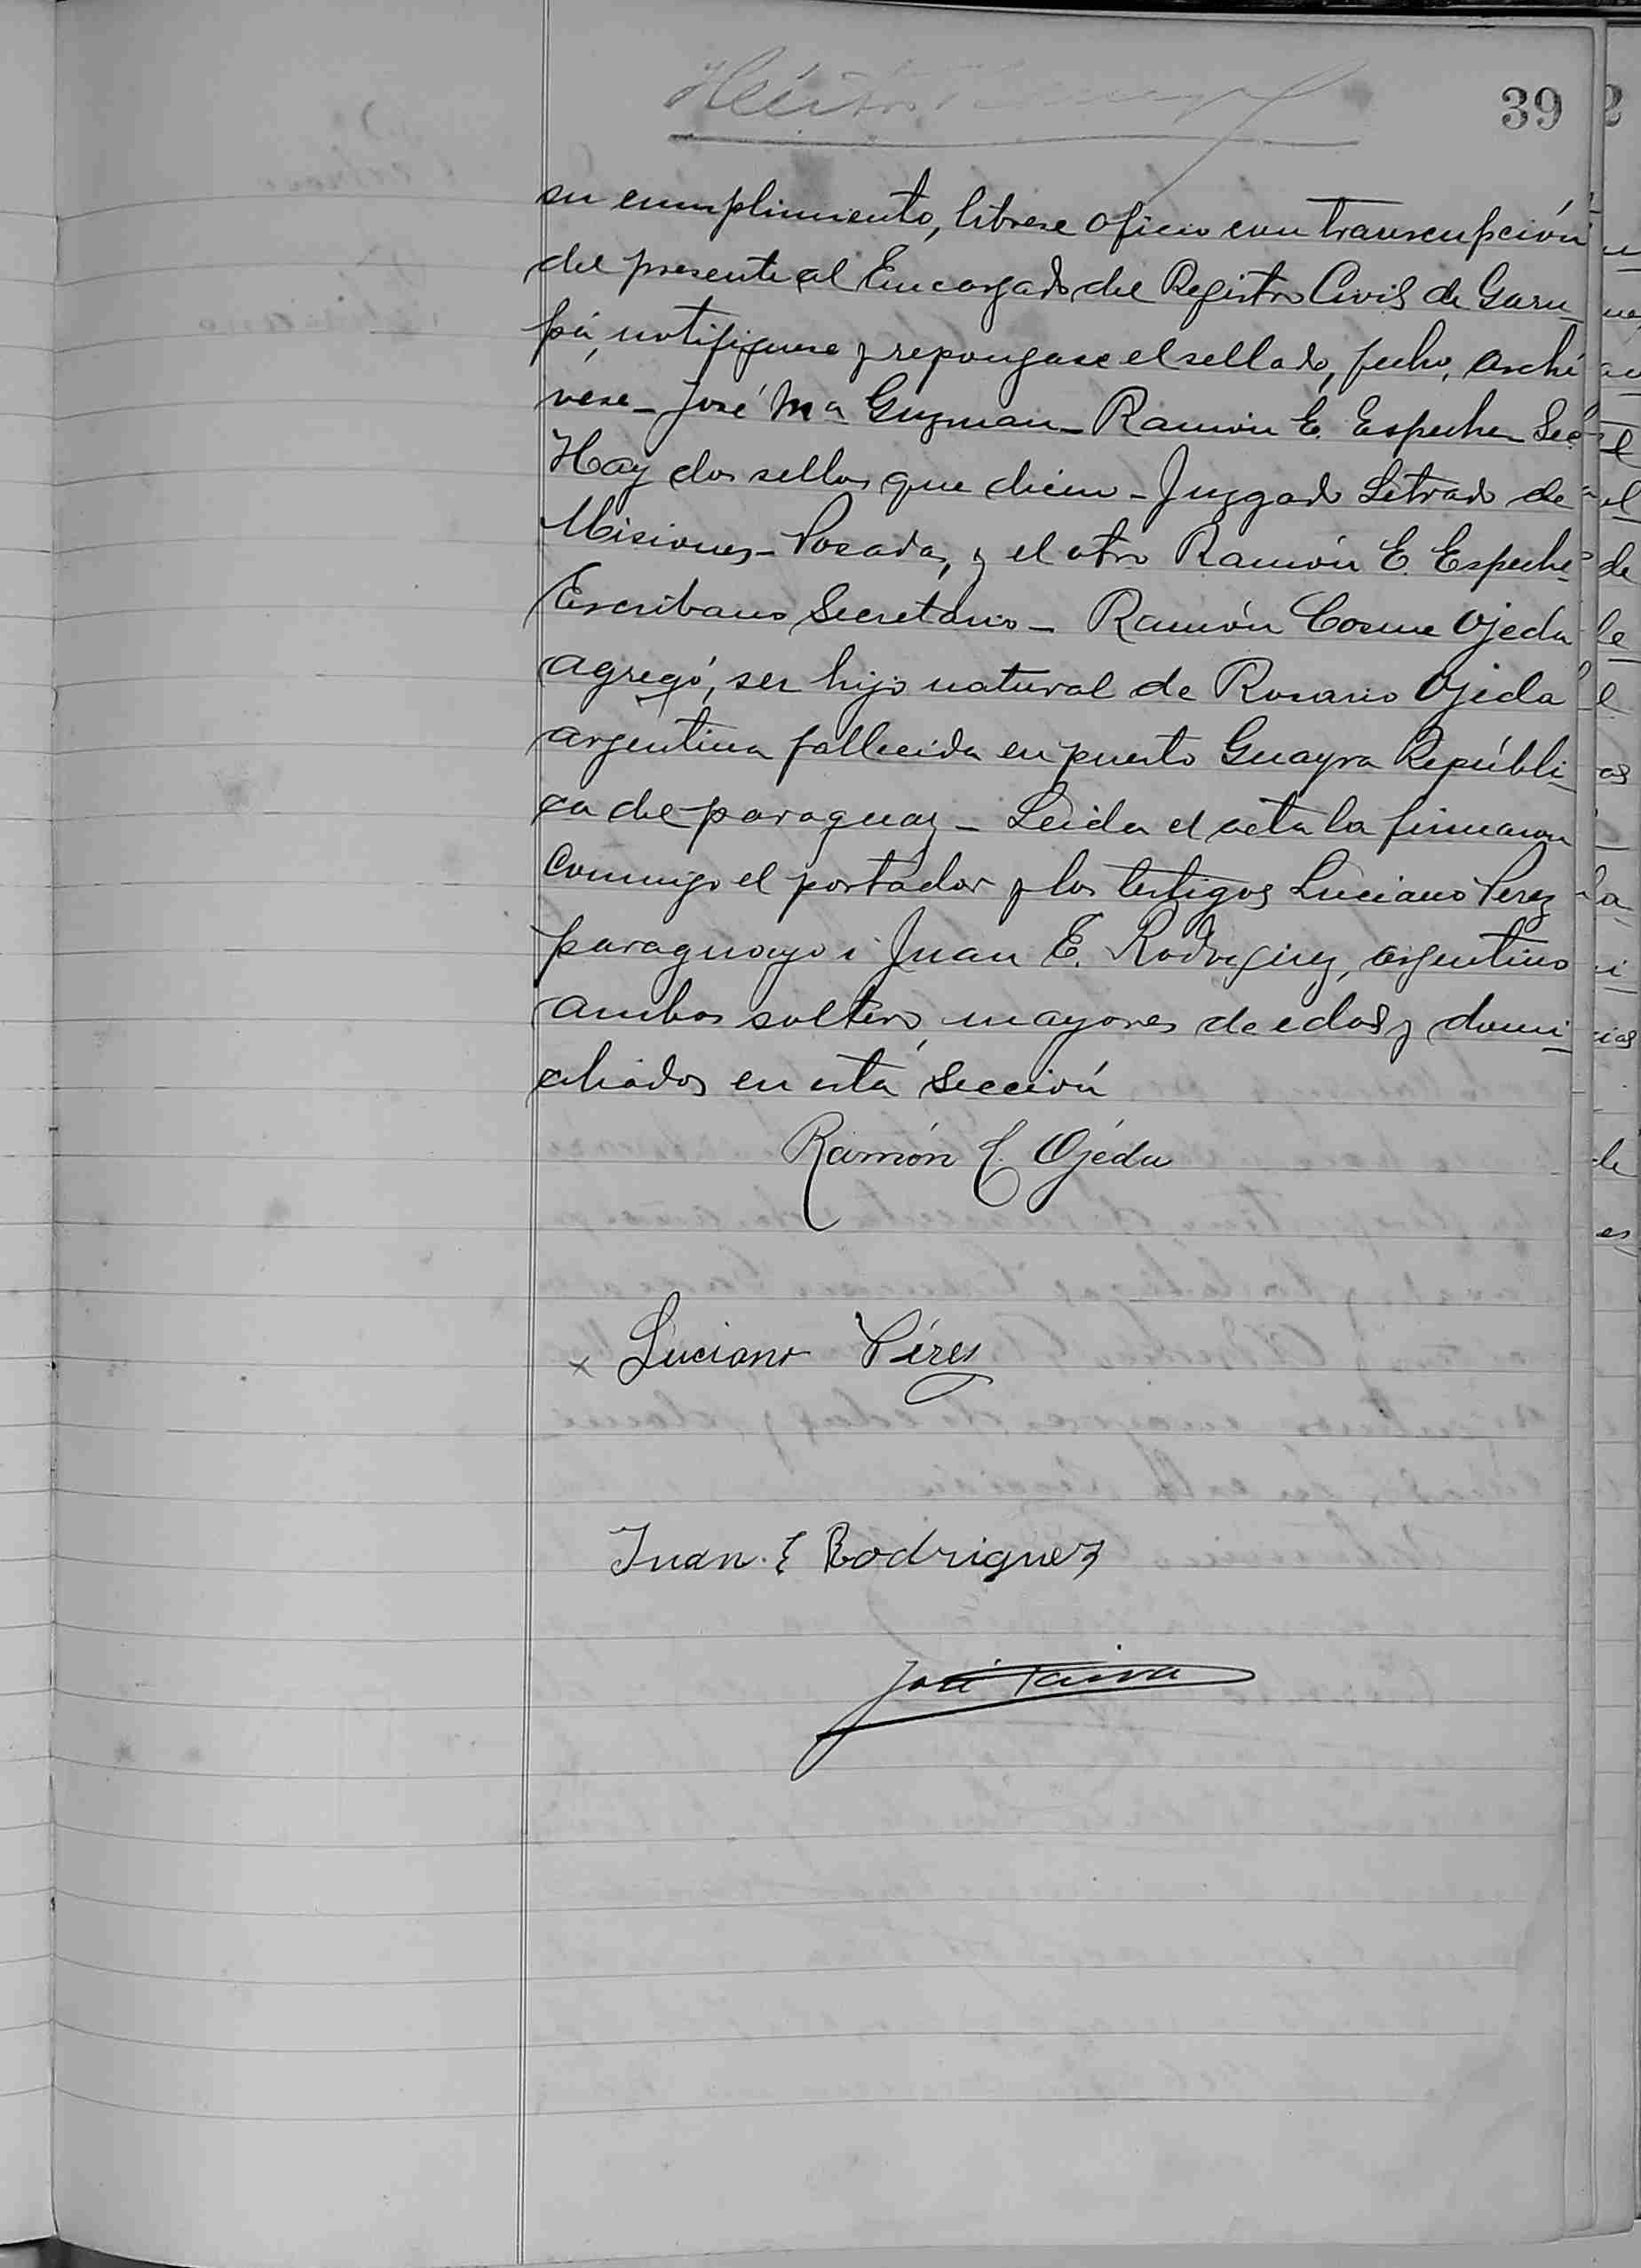 39
su cumplimiento, librese oficio con transcripción
del presente al Encargado del Registro Civil de Garu-
pá, notifiquese y repongase el sellado, fecho, archi
vese - José Mª Guzman - Ramón E. Espeche Sec
Hay dos sellos que dicen - Juzgado Letrado de
Misiones - Posadas, y el otro Ramón E. Espeche
Escribano Secretario - Ramón Cosme Ojeda
agregó, ser hijo natural de Rosario Ojeda
argentina fallecida en puerto Guayra Repúbli-
ca del paraguay - Leida el acta la firmaron
conmigo el portador y los testigos Luciano Perez
paraguayo i Juan E. Rodriguez, argentino
ambos solteros, mayores de edad y domi-
ciliados en esta Sección
Ramón C. Ojéda
x Luciano Pérez
Juan. E Rodriguez
José Paiva